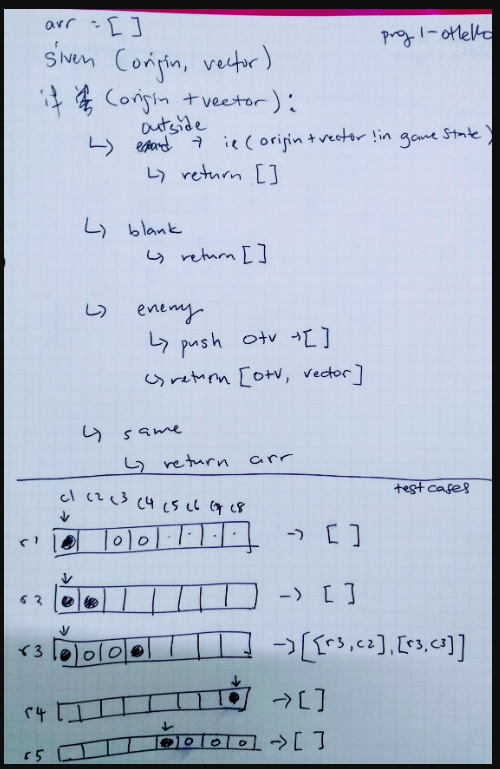 arr = [ ]
prog 1 - othello
given (origin, vector)
if (origin + vector) :
outside
↳ → ie (origin + vector !in game state)
↳ return [ ]
↳ blank
↳ return [ ]
↳ enemy
↳ push o+v → [ ]
↳ return [o+v, vector]
↳ same
↳ return arr
test cases
c1 c2 c3 c4 c5 c6 c7 c8
r1 → [ ]
r2 → [ ]
r3 → [[r3, c2], [r3, c3]]
r4 → [ ]
r5 → [ ]